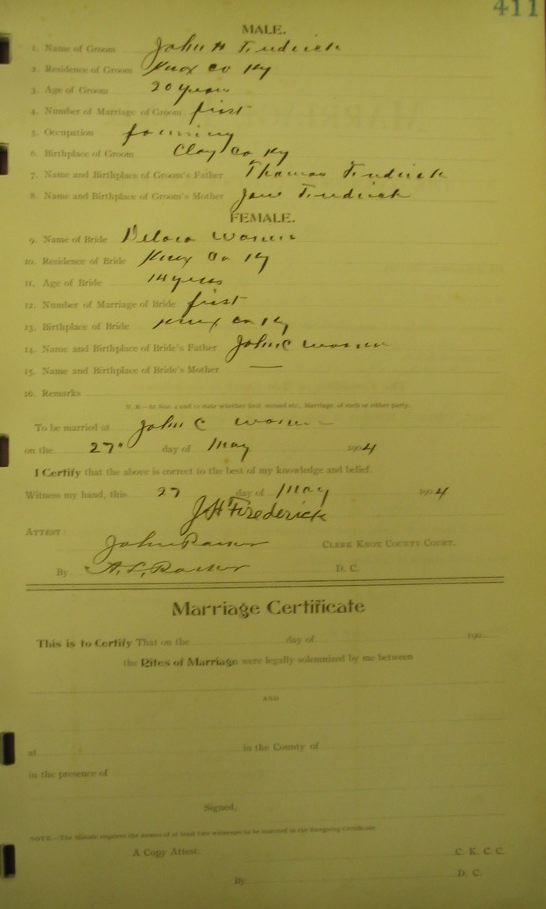 411
MALE.
1. Name of Groom John H Firedrick
2. Residence of Groom Knox Co Ky
3. Age of Groom 20 years
4. Number of Marriage of Groom first
5. Occupation farming
6. Birthplace of Groom Clay Co Ky
7. Name and Birthplace of Groom's Father Thomas Firedrick
8. Name and Birthplace of Groom's Mother Jane Firedrick
FEMALE.
9. Name of Bride
10. Residence of Bride Knox Co Ky
11. Age of Bride 14 years
12. Number of Marriage of Bride first
13. Birthplace of Bride Knox Co Ky
14. Name and Birthplace of Bride's Father John C
15. Name and Birthplace of Bride's Mother —
16. Remarks
N. B.—At Nos. 4 and 12 state whether first, second etc., Marriage, of each or either party.
To be married at John C
on the 27" day of May 1904
I Certify that the above is correct to the best of my knowledge and belief.
Witness my hand, this 27 day of May 1904
J H Firederick
ATTEST:
John CLERK KNOX COUNTY COURT.
By D. C.
Marriage Certificate
This is to Certify That on the day of 190
the Rites of Marriage were legally solemnized by me between
AND
at in the County of
in the presence of
Signed,
NOTE.—The Statute requires the names of at least two witnesses to be inserted in the foregoing Certificate
A Copy Attest: C. K. C. C.
By D. C.